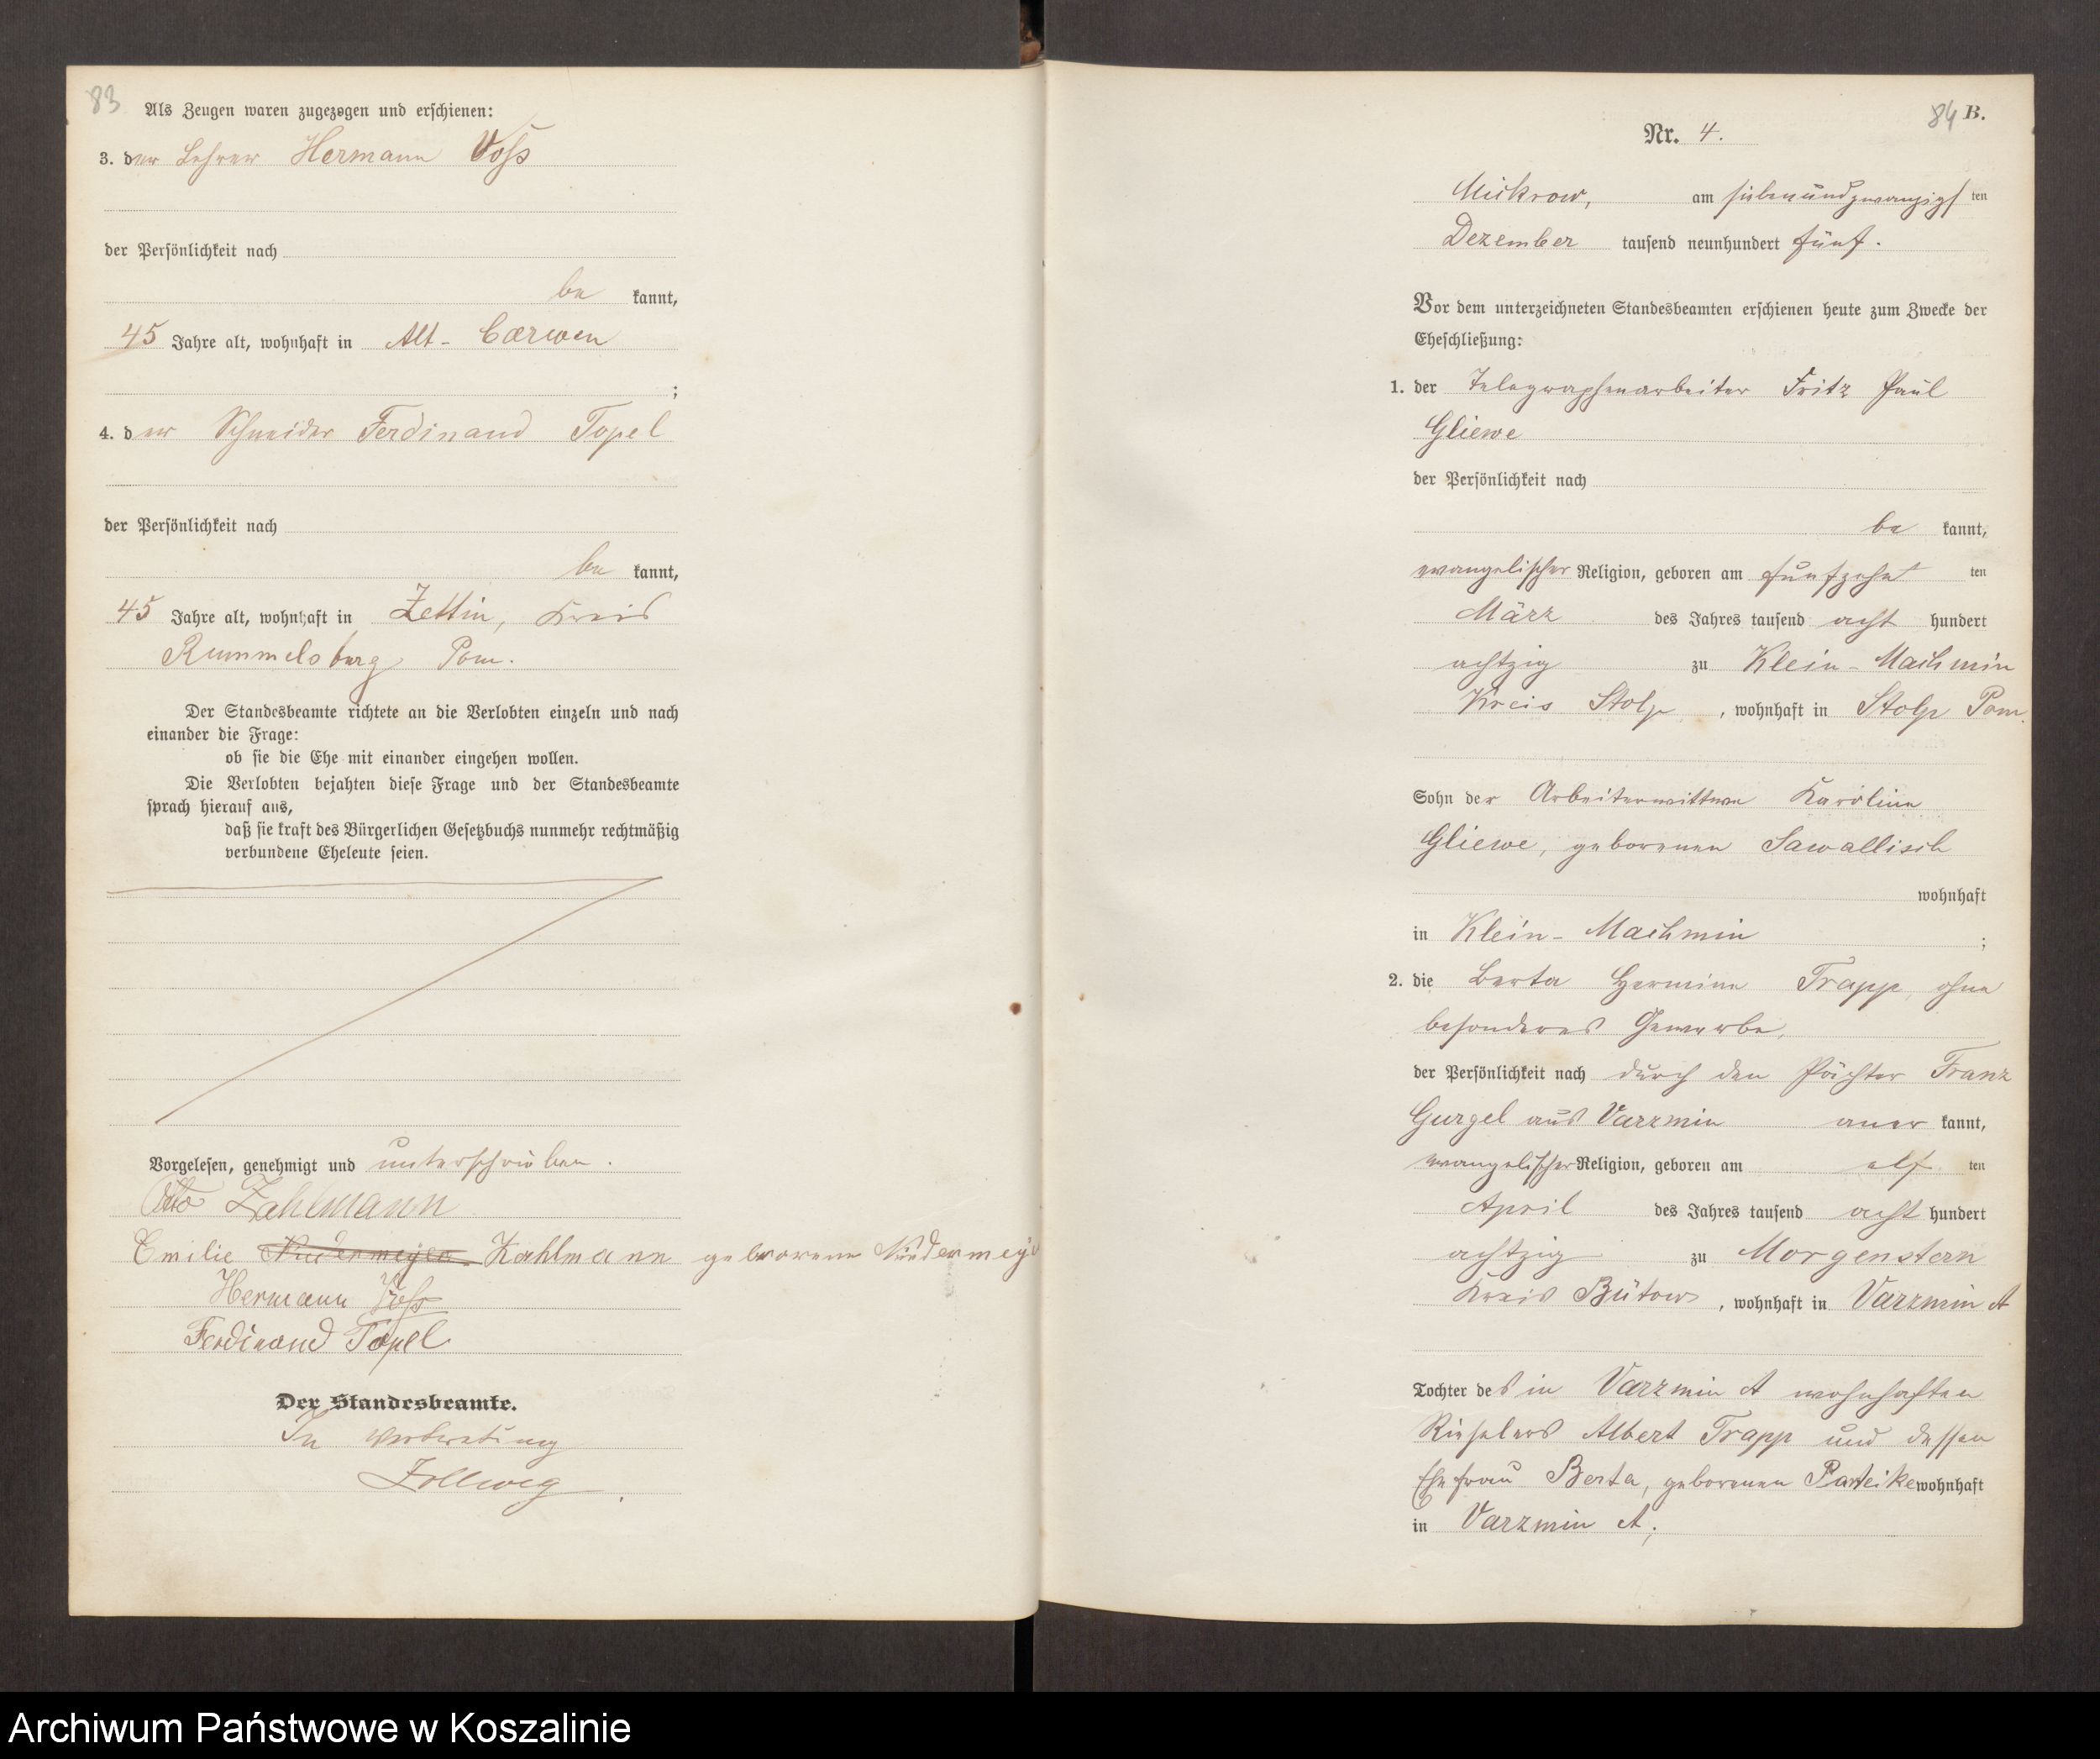 83
Als Zeugen waren zugezogen und erschienen:
3. der Lehrer Hermann Voß
der Persönlichkeit nach
be kannt,
45 Jahre alt, wohnhaft in Alt-Carwen
;
4. der Schneider Ferdinand Topel
der Persönlichkeit nach
be kannt,
45 Jahre alt, wohnhaft in Zettin, Kreis
Rummelsburg Pom.
Der Standesbeamte richtete an die Verlobten einzeln und nach
einander die Frage:
ob sie die Ehe mit einander eingehen wollen.
Die Verlobten bejahten diese Frage und der Standesbeamte
sprach hierauf aus,
daß sie kraft des Bürgerlichen Gesetzbuchs nunmehr rechtmäßig
verbundene Eheleute seien.
Vorgelesen, genehmigt und unterschrieben.
Otto Kahlmann
Emilie Niedermeyer Kahlmann geborene Niedermeye
Hermann Voß
Ferdinand Topel
Der Standesbeamte.
In Vertretung
Zollweg
84 B.
Nr. 4.
Mickrow, am siebenundzwanzigsten
Dezember tausend neunhundert fünf.
Vor dem unterzeichneten Standesbeamten erschienen heute zum Zwecke der
Eheschließung:
1. der Telegraphenarbeiter Fritz Paul
Gliewe
der Persönlichkeit nach
be kannt,
evangelischer Religion, geboren am fünfzehnten
März des Jahres tausend acht hundert
achtzig zu Klein-Machmin
Kreis Stolp, wohnhaft in Stolp Pom.
Sohn der Arbeiterwittwe Karoline
Gliewe, geborenen Sawallisch
wohnhaft
in Klein-Machmin ;
2. die Berta Hermine Trapp, ohne
besonderes Gewerbe,
der Persönlichkeit nach durch den Pächter Franz
Gurgel aus Varzmin aner kannt,
evangelischer Religion, geboren am elf ten
April des Jahres tausend acht hundert
achtzig zu Morgenstern
Kreis Bütow, wohnhaft in Varzmin A
Tochter des in Varzmin A wohnhaften
Rieselers Albert Trapp und dessen
Ehefrau Berta, geborenen wohnhaft
in Varzmin A;
Archiwum Państwowe w Koszalinie